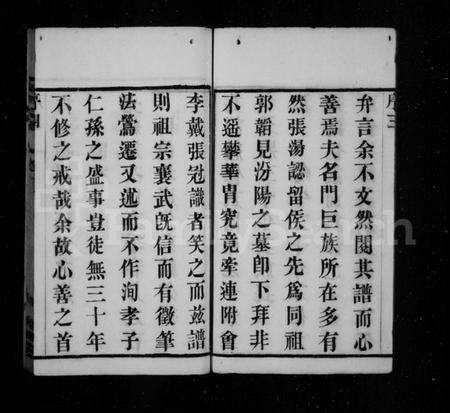 序三
弁言余不文然閱其譜而心
善焉夫名門巨族所在多有
然張湯認留侯之先為同祖
郭韜見汾陽之墓即下拜非
不遥攀華胄究竟牽連附會
李戴張冠識者笑之而兹譜
則祖宗襄武旣信而有徵筆
法鶯遷又述而不作洵孝子
仁孫之盛事豈徒無三十年
不修之戒哉余故心善之首